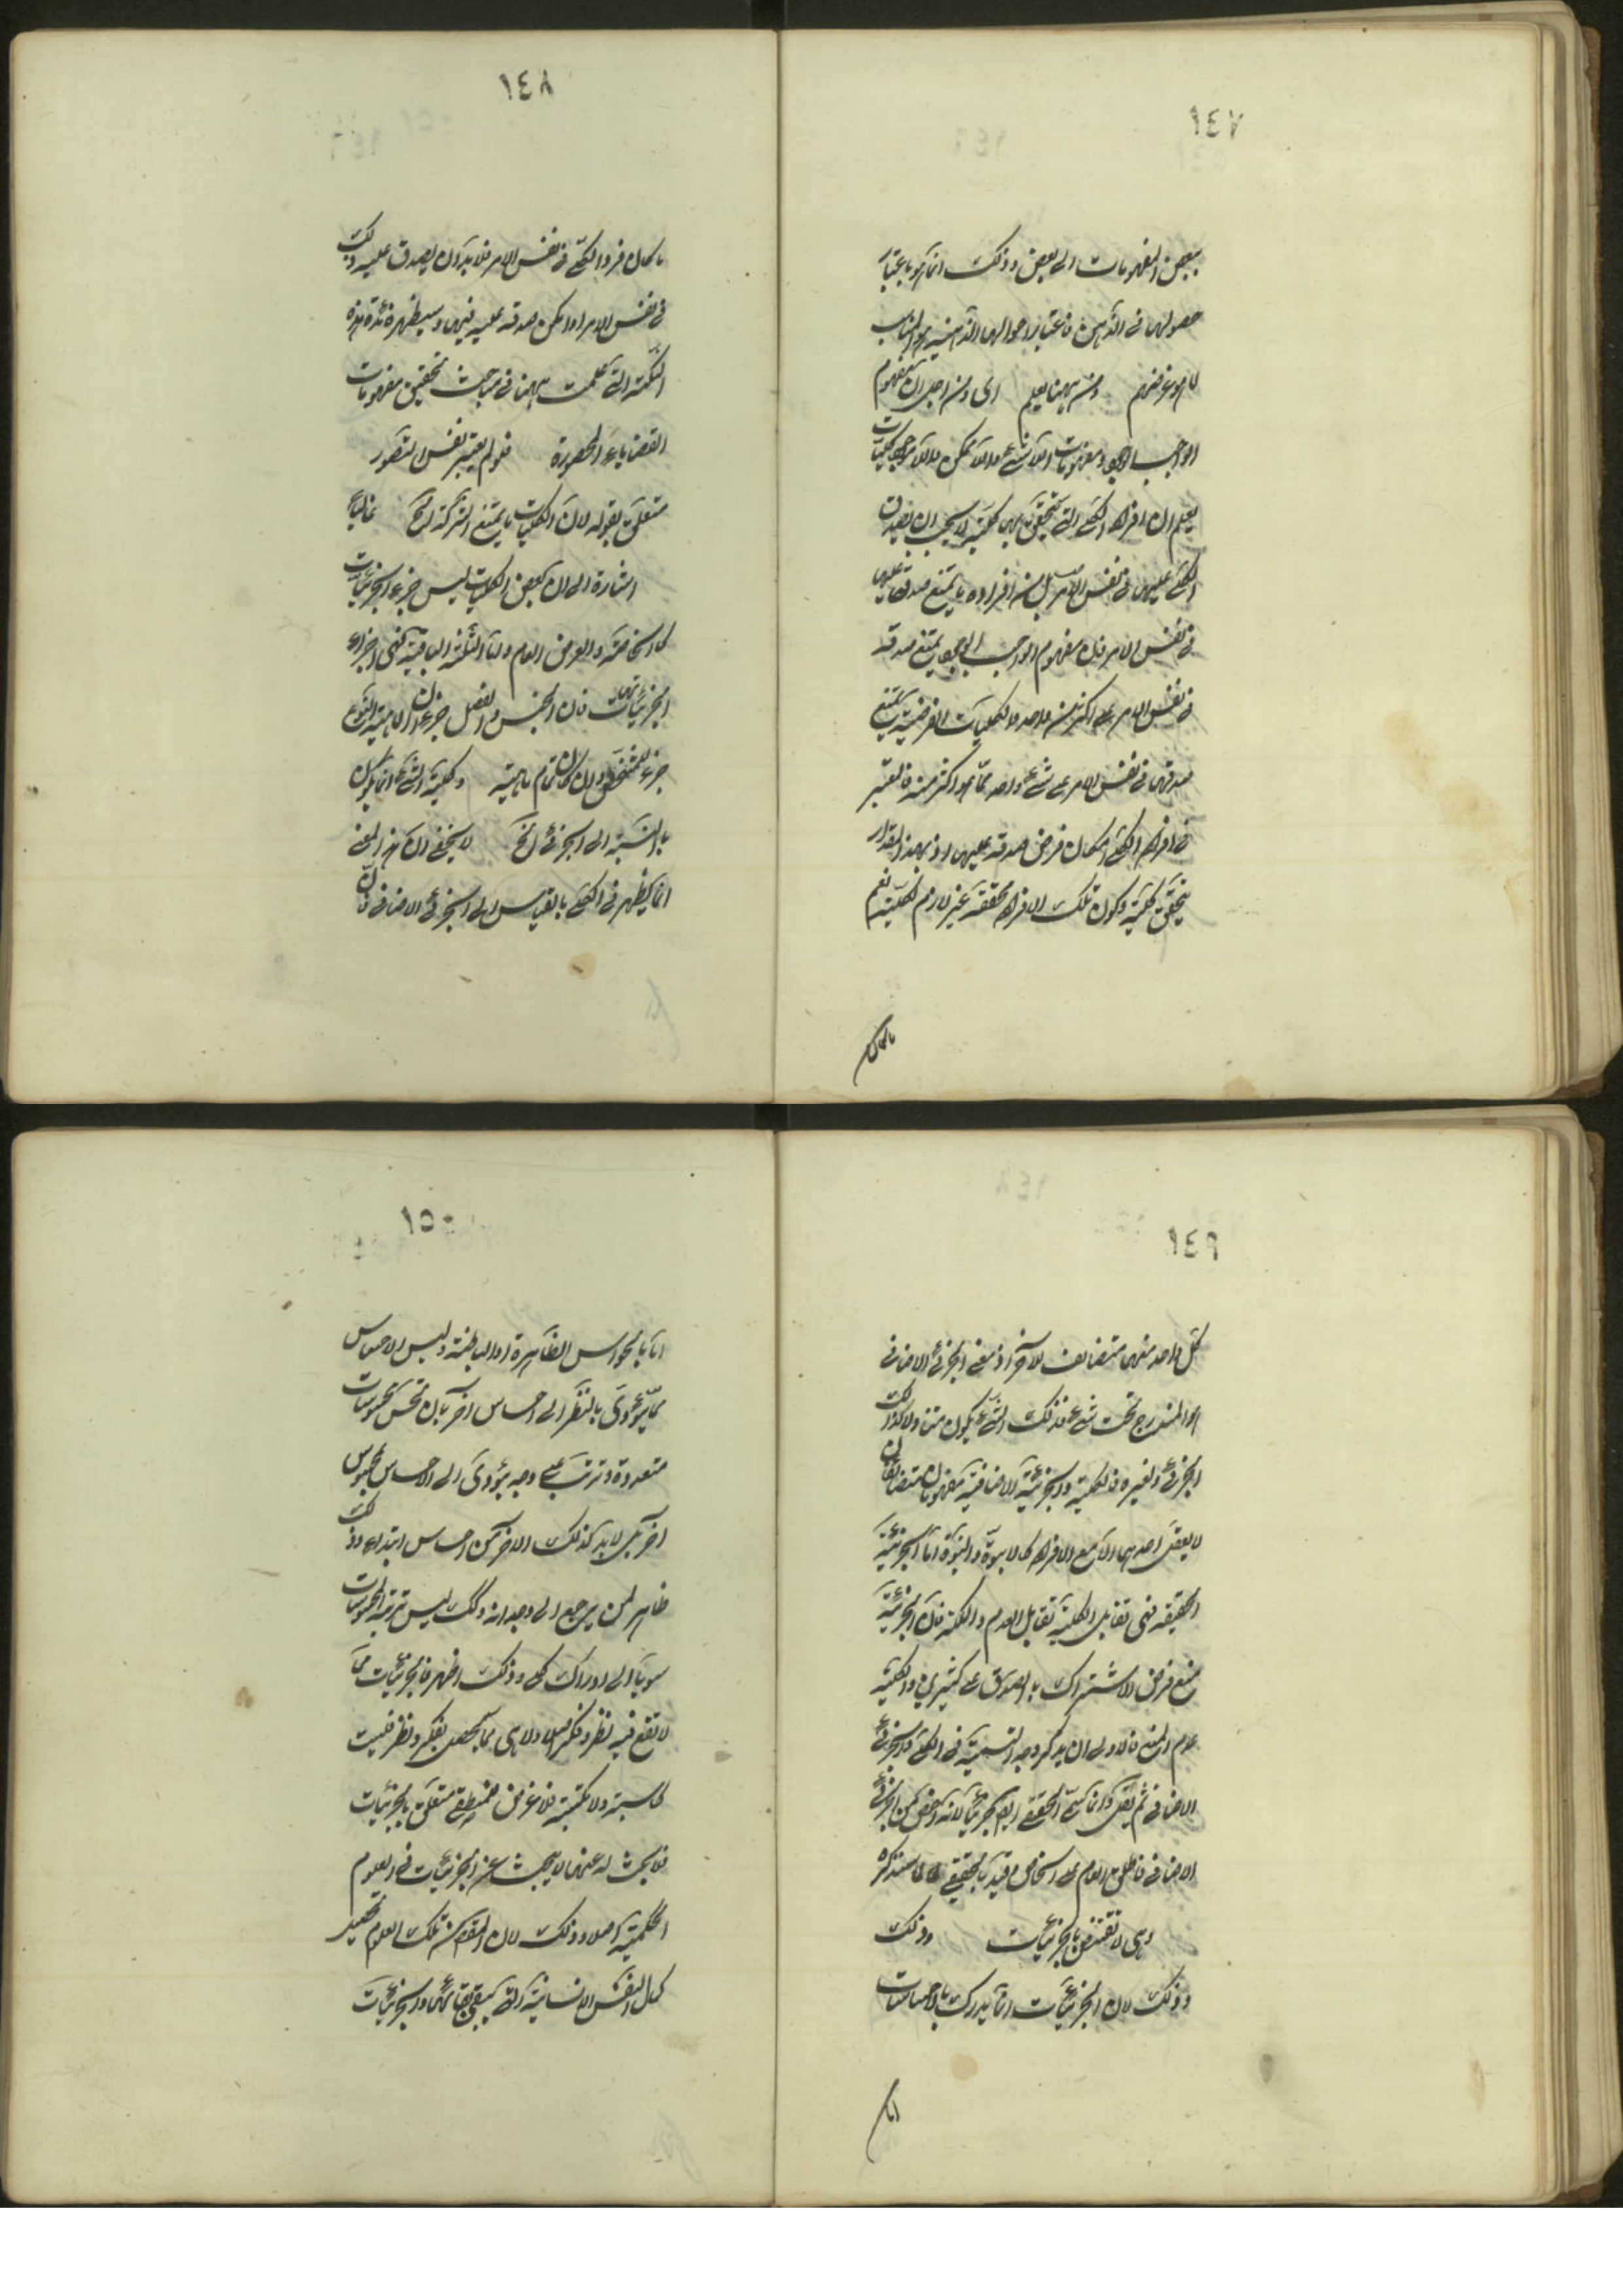 ١٤٧
بعض المفهومات الى بعض وذلك انما هو باعتبار
حصولها فى الذهن فاعتبار احوالها الذهنية هو المناسب
لما هو غرضهم ومن ههنا يعلم اى ومن اجل ان مفهوم
الواجب الوجود ومفهومات اللاشئ واللاممكن واللاموجود كليات
يعلم ان افراد الكلى التى يتحقق بها كليته لا يجب ان يصدق
الكلى عليها فى نفس الامر بل من افراده ما يمتنع صدقه عليها
فى نفس الامر فان مفهوم الواجب الوجود يمتنع صدقه
فى نفس الامر على اكثر من واحد والكليات الفرضية يمتنع
صدقها فى نفس الامر على شئ واحد مما هو اكثر منه فالمعتبر
فى افراد الكلى امكان فرض صدقه عليها اذ بهذا المقدار
يتحقق كليته وكون تلك الافراد محققة غير لازم لكليته نعم
ما كان
١٤٨
ما كان فردا لكلى فى نفس الامر فلا بد وان يصدق عليه ذلك
فى نفس الامر او امكن صدقه عليه فيها وسيظهر فائدة هذه
النكتة التى علمت ههنا فى مباحث تحقيق مفهومات
القضايا المحصورة فلو لم يعتبر نفس التصور
متعلق بقوله لان الكليات ما يمتنع الشركة الخ غالبا
اشارة الى ان بعض الكليات ليس جزء الجزئيات
كالخاصة والعرض العام واما الثلثة الباقية فهى اجزاء
لجزئياتها فان الجنس والفصل جزءان لماهية النوع
جزء للشخص وان كان تمام ماهيته وكلية الشئ انما يكون
بالنسبة الى الجزئى الخ لا يخفى ان هذا المعنى
انما يظهر فى الكلى بالقياس الى الجزئى الاضافى فان
١٤٩
كل واحد منهما متضايف للآخر اذ معنى الجزئى الاضافى
هو المندرج تحت شئ فذلك الشئ يكون متناولا لذلك
الجزئى ولغيره فالكلية والجزئية الاضافية مفهومان متضايفان
لا يعقل احدهما الا مع الاخر كالابوة والبنوة اما الجزئية
الحقيقة فهى تقابل الكلية تقابل العدم والملكة فان الجزئية
منع فرض الاشتراك بالصدق على كثيرين والكلية
عدم المنع فالاولى ان يذكر وجه التسمية فى الكلى والجزئى
الاضافى ثم يقال وانما سمى الحقيقى ايضا جزئيا لانه اخص من الجزئى
الاضافى فاطلق العام على الخاص وقيد بالحقيقى كما سنذكره
وهى لا تقتنص بالجزئيات وذلك
وذلك لان الجزئيات انما يدرك بالاحساسات
اما
١٥٠
اما بالحواس الظاهرة او الباطنة وليس الاحساس
مما يؤدى بالنظر الى احساس آخر بان تحس بمحسوسات
متعددة وترتب على وجه يؤدى الى الاحساس بمحسوس
آخر بل لا بد لذلك الاخر من احساس ابتداء وذلك
ظاهر لمن يرجع الى وجدانه وكك ليس ترتيب المحسوسات
موديا الى ادراك كلى وذلك اظهر فالجزئيات مما
لا تقع فيه نظر وفكر اصلا ولا هى مما يحصل بفكر ونظر فليست
كاسبة ولا مكتسبة فلا غرض للمنطقى متعلق بالجزئيات
فلا بحث له عنها بل لا يبحث عن الجزئيات فى العلوم
الحكمية اصلا وذلك لان المقصود من تلك العلوم تحصيل
كمال النفس الانسانية الذى يبقى ببقائها والجزئيات